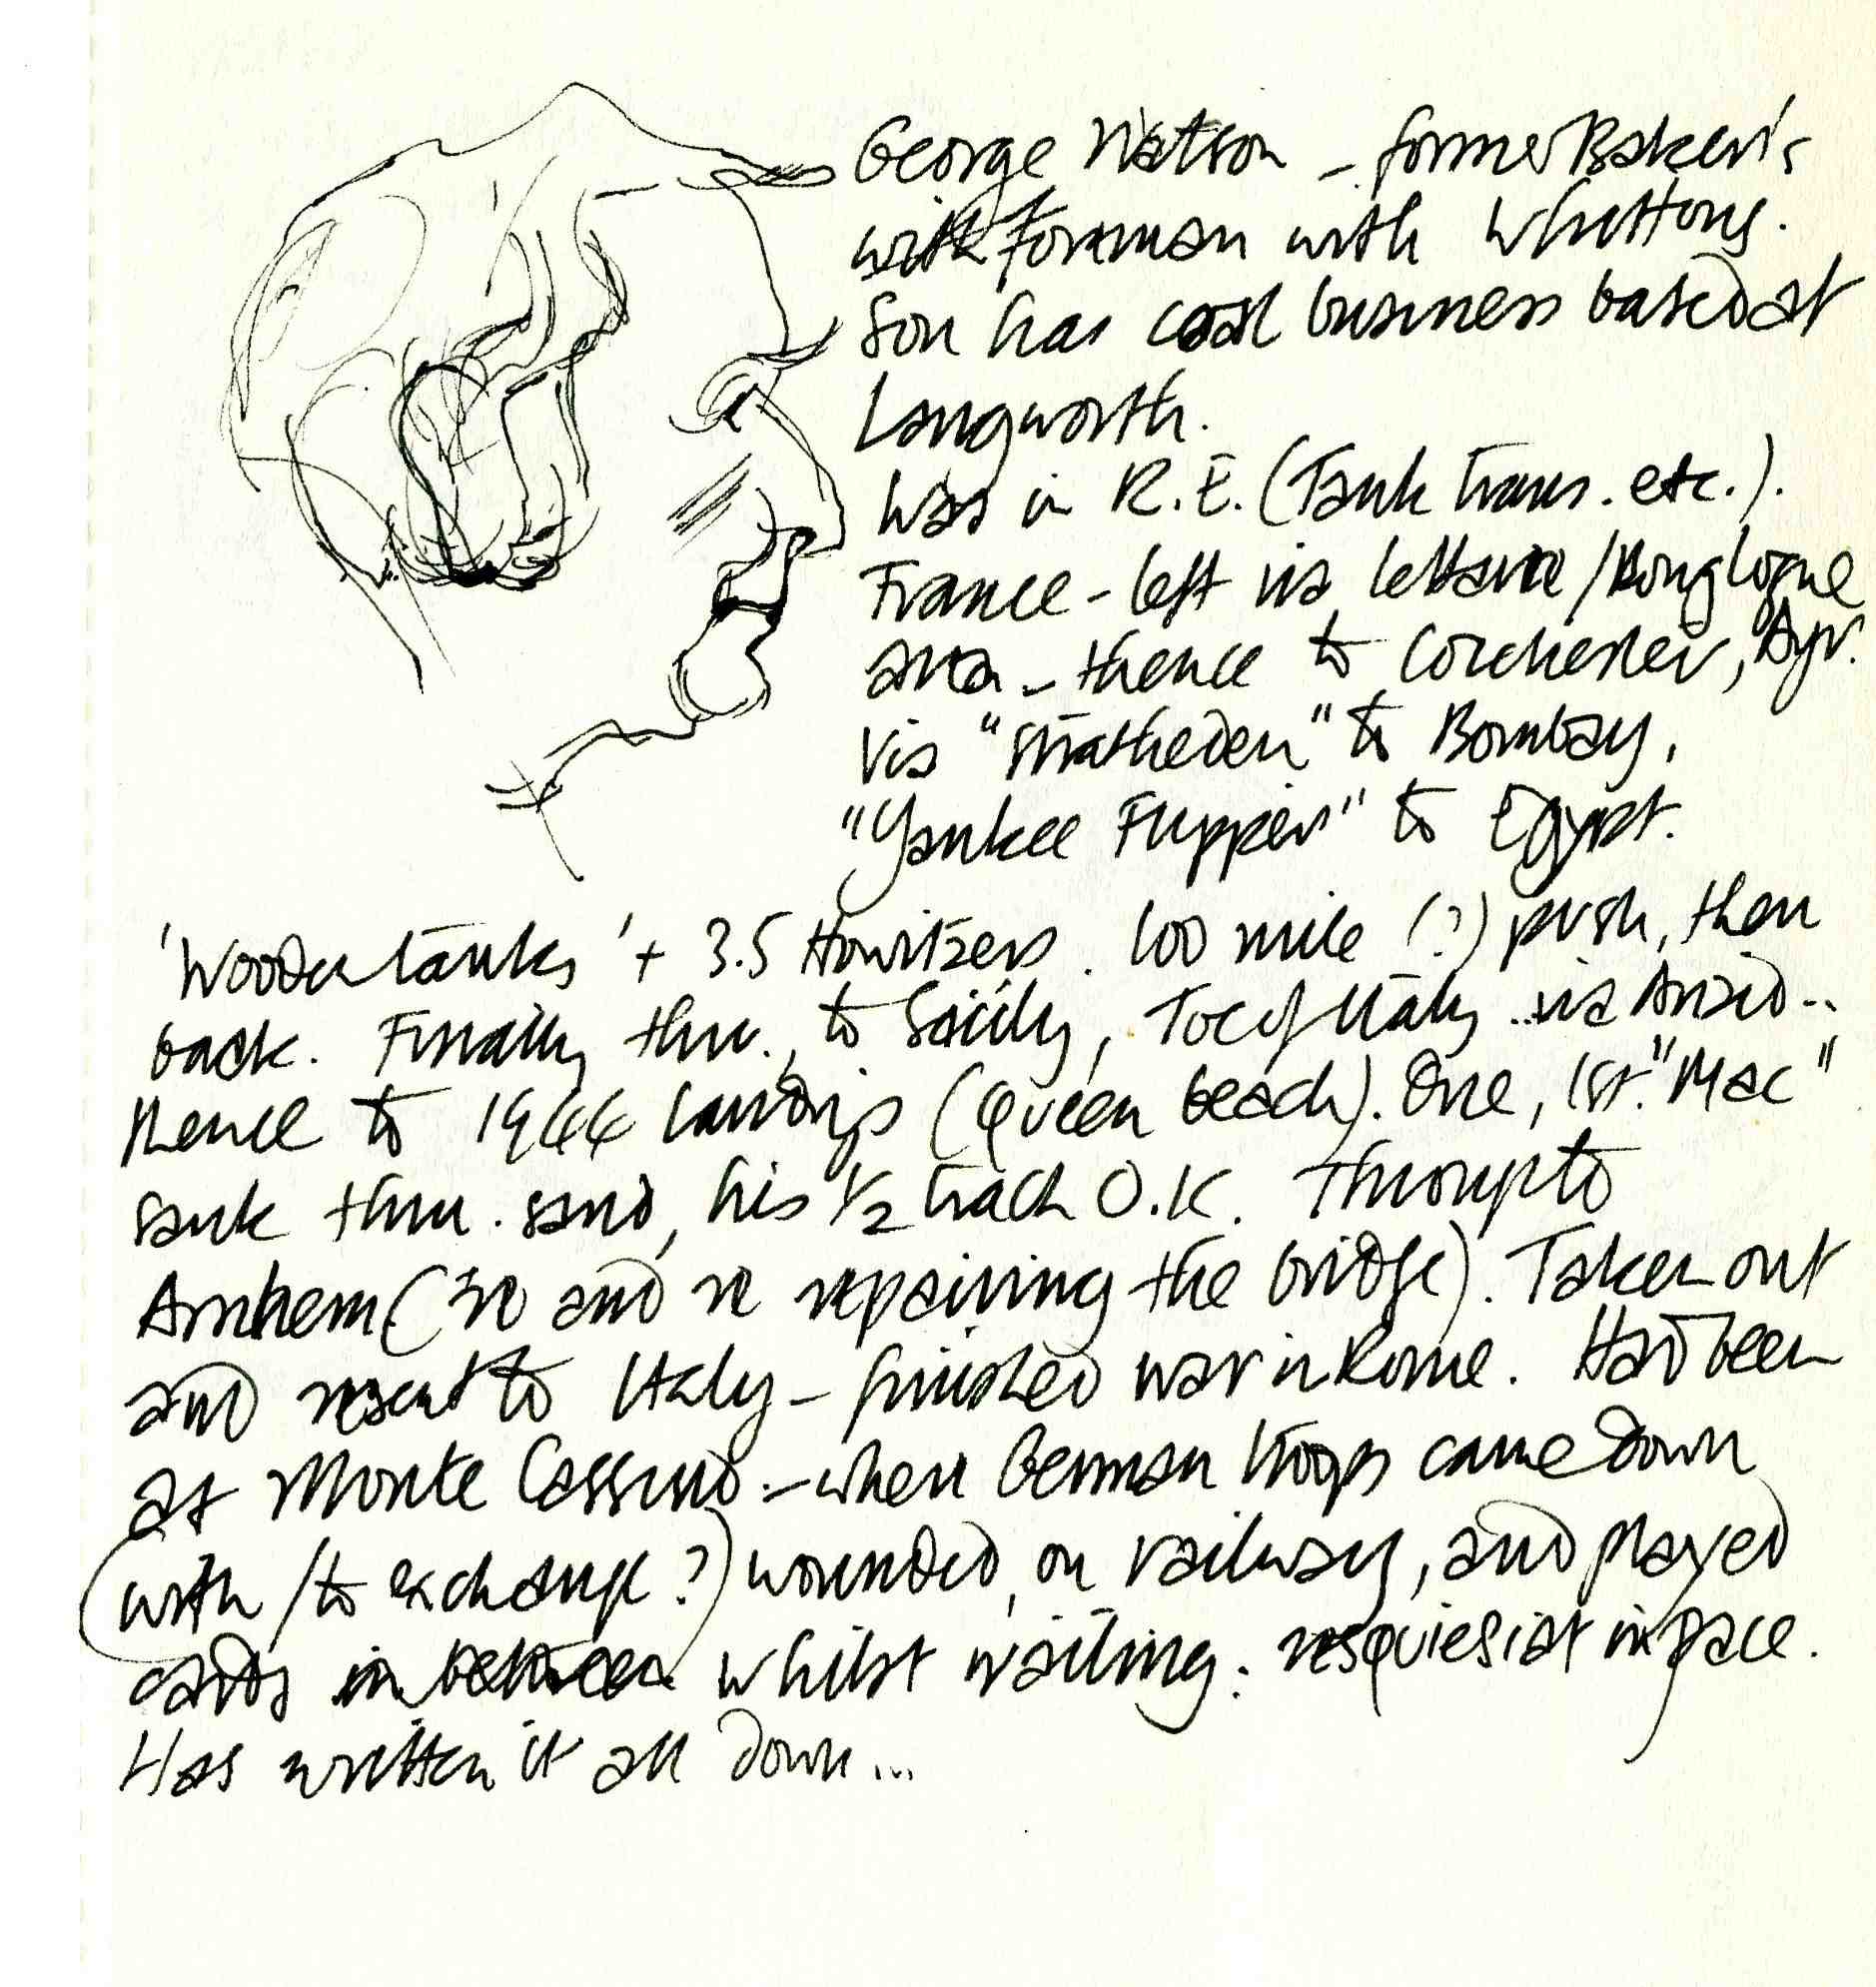 George Watson – former Baker's
with foreman with Whettons.
Son has coal business based at
Langworth.
Was in R.E. (Tank Trans. etc.).
France – left via /Boulogne
area – thence to Colchester, Ayr.
Via "Stratheden" to Bombay,
"Yankee Flipper" to Egypt.
'Wooden tanks' + 3.5 Howitzers. 100 mile (?) push, then
back. Finally thru., to Sicily, Toe of Italy .. via Anzio..
thence to 1944 landings (Queen beach). One, 1st. "Mac"
sank thru. sand, his 1/2 track O.K. Through to
Arnhem ( and re repairing the bridge). Taken out
and resent to Italy – finished war in Rome. Had been
at Monte Cassino – when German troops came down
(with /to exchange?) wounded, on railway, and played
cards in between whilst waiting: resquiesiat in pace.
Has written it all down...